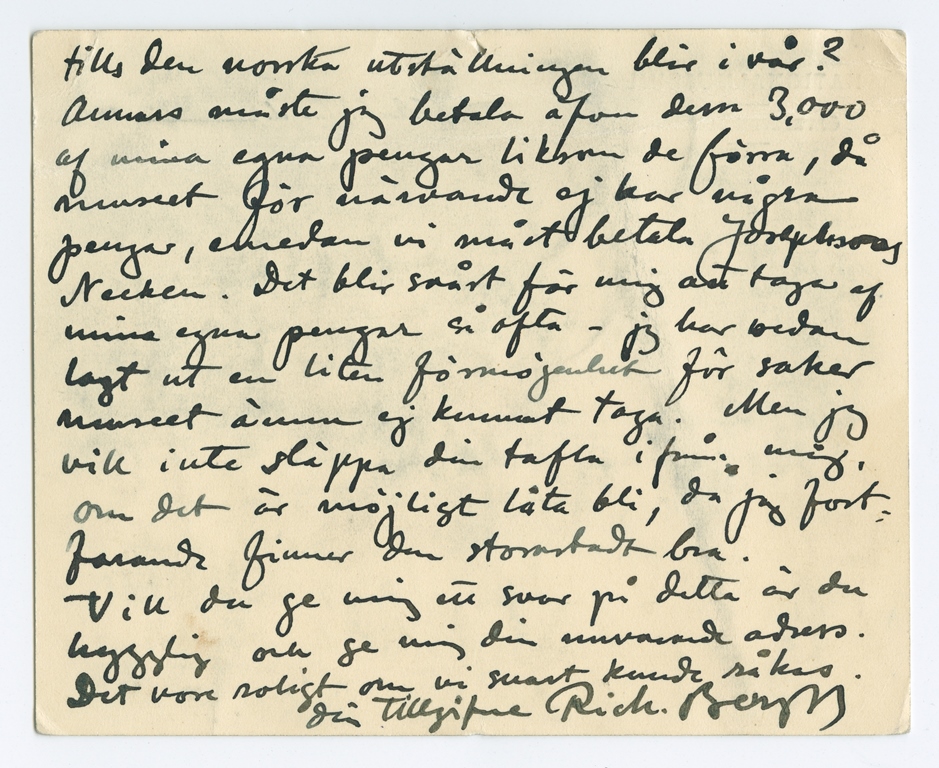 tills den norska utställningen blir i vår?
Annars måste jag betala äfven dessa 3,000
af mina egna pengar liksom de förra, då
museet för närvarande ej har några
pengar, emedan vi måst betala Josephsons
Necken. Det blir svårt för mig att taga af
mina egna pengar så ofta – jag har redan
lagt ut en liten förmögenhet för saker
museet ännu ej kunnat taga. Men jag
vill inte släppa din tafla ifrån mig,
om det är möjligt låta bli, då jag fort-
farande finner den storartadt bra.
Vill du ge mig ett svar på detta är du
hygglig och ge mig din nuvarande adress.
Det vore roligt om vi snart kunde råkas.
din tillgifne Rich. Bergh